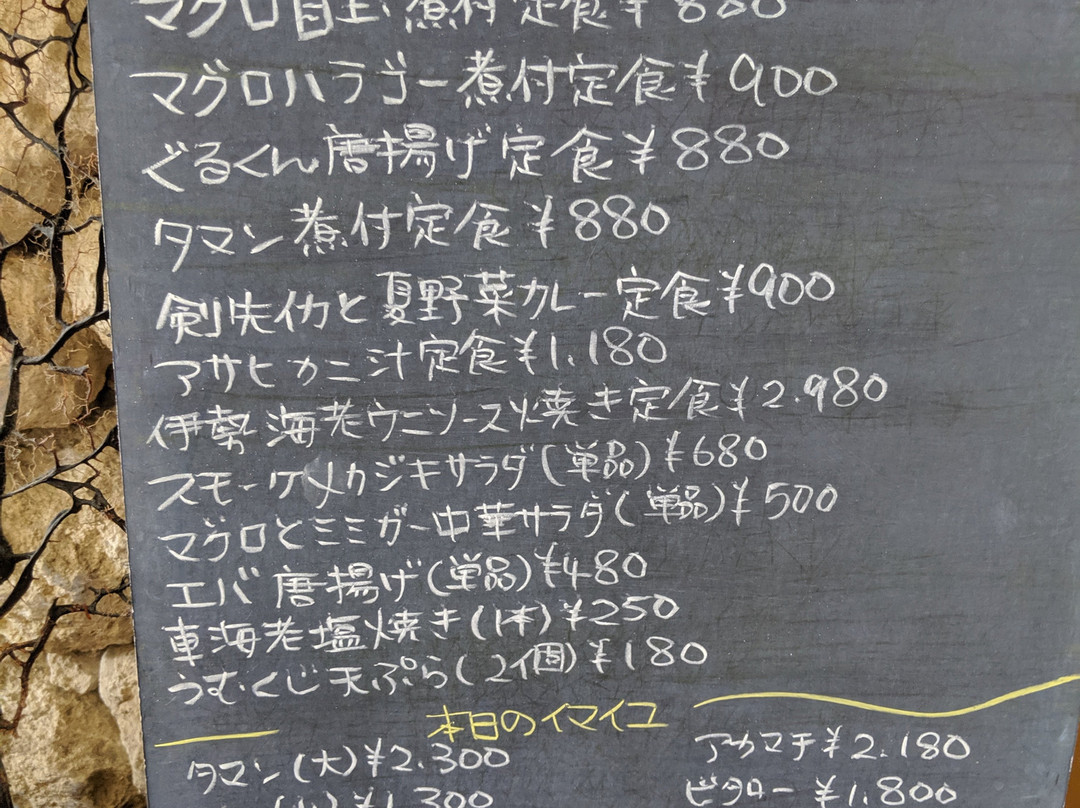 マグロ目玉煮付定食¥880
マグロハラゴー煮付定食¥900
ぐるくん唐揚げ定食¥880
タマン煮付定食¥880
剣先イカと夏野菜カレー定食¥900
アサヒカニ汁定食¥1.180
伊勢海老ウニソース焼き定食¥2.980
スモークメカジキサラダ(単品)¥680
マグロとミミガー中華サラダ(単品)¥500
エバ唐揚げ(単品)¥480
車海老塩焼き(1本)¥250
うむくじ天ぷら(2個)¥180
本日のイマイユ
タマン(大)¥2.300
アカマチ¥2.180
(小)¥1.300
ビタロー¥1.800